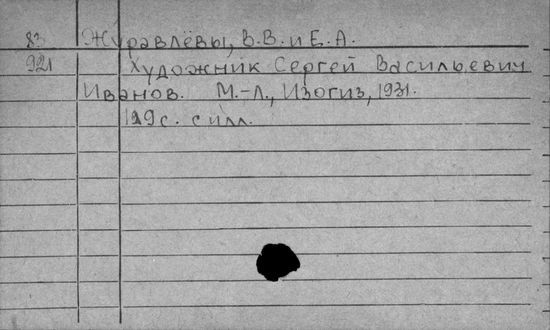 83 Журавлёвы, В.В. и Е.А.
921 Художник Сергей Васильевич
Иванов. М.-Л., Изогиз, 1931.
129 с. с илл.